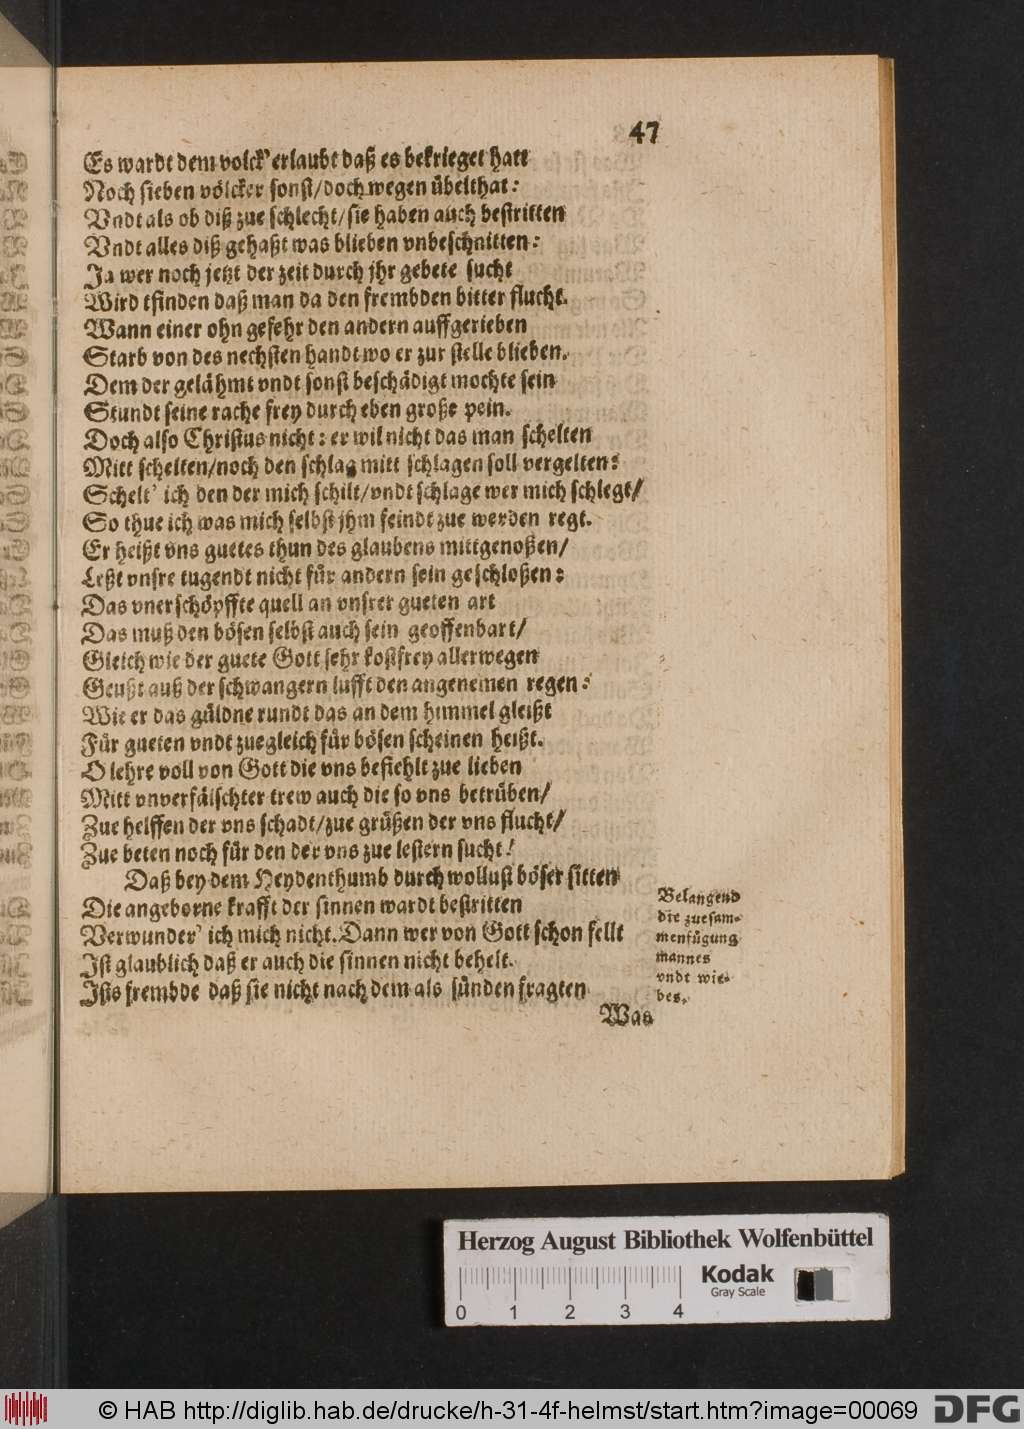 47
Es wardt dem volck' erlaubt daß es bekrieget hatt
Noch sieben völcker sonst/doch wegen übelthat:
Vndt als ob diß zue schlecht/sie haben auch bestritten
Vndt alles diß gehaßt was blieben vnbeschnitten:
Ja wer noch jetzt der zeit durch jhr gebete sucht
Wird tfinden daß man da den frembden bitter flucht.
Wann einer ohn gefehr den andern auffgerieben
Starb von des nechsten handt wo er zur stelle blieben.
Dem der gelähmt vndt sonst beschädigt mochte sein
Stundt seine rache frey durch eben große pein.
Doch also Christus nicht: er wil nicht das man schelten
Mitt schelten/noch den schlag mitt schlagen soll vergelten:
Schelt' ich den der mich schilt/vndt schlage wer mich schlegt/
So thue ich was mich selbst jhm feindt zue werden regt.
Er heißt vns guetes thun des glaubens mittgenoßen/
Leßt vnsre tugendt nicht für andern sein geschloßen:
Das vnerschöpffte quell an vnsrer gueten art
Das muß den bösen selbst auch sein geoffenbart/
Gleich wie der guete Gott sehr kostfrey allerwegen
Geußt auß der schwangern lufft den angenemen regen:
Wie er das güldne rundt das an dem himmel gleißt
Für gueten vndt zuegleich für bösen scheinen heißt.
O lehre voll von Gott die vns befiehlt zue lieben
Mitt vnverfälschter trew auch die so vns betrüben/
Zue helffen der vns schadt/zue grüßen der vns flucht/
Zue beten noch für den der vns zue lestern sucht!
Daß bey dem Heydenthumb durch wollust böser sitten
Die angeborne krafft der sinnen wardt bestritten
Verwunder' ich mich nicht. Dann wer von Gott schon fellt
Ist glaublich daß er auch die sinnen nicht behelt.
Ists frembde daß sie nicht nach dem als sünden fragten
Belangend
die zuesam-
menfügung
mannes
vndt wie-
bes.
Was
Herzog August Bibliothek Wolfenbüttel
Kodak
Gray Scale
0 1 2 3 4
© HAB http://diglib.hab.de/drucke/h-31-4f-helmst/start.htm?image=00069
DFG